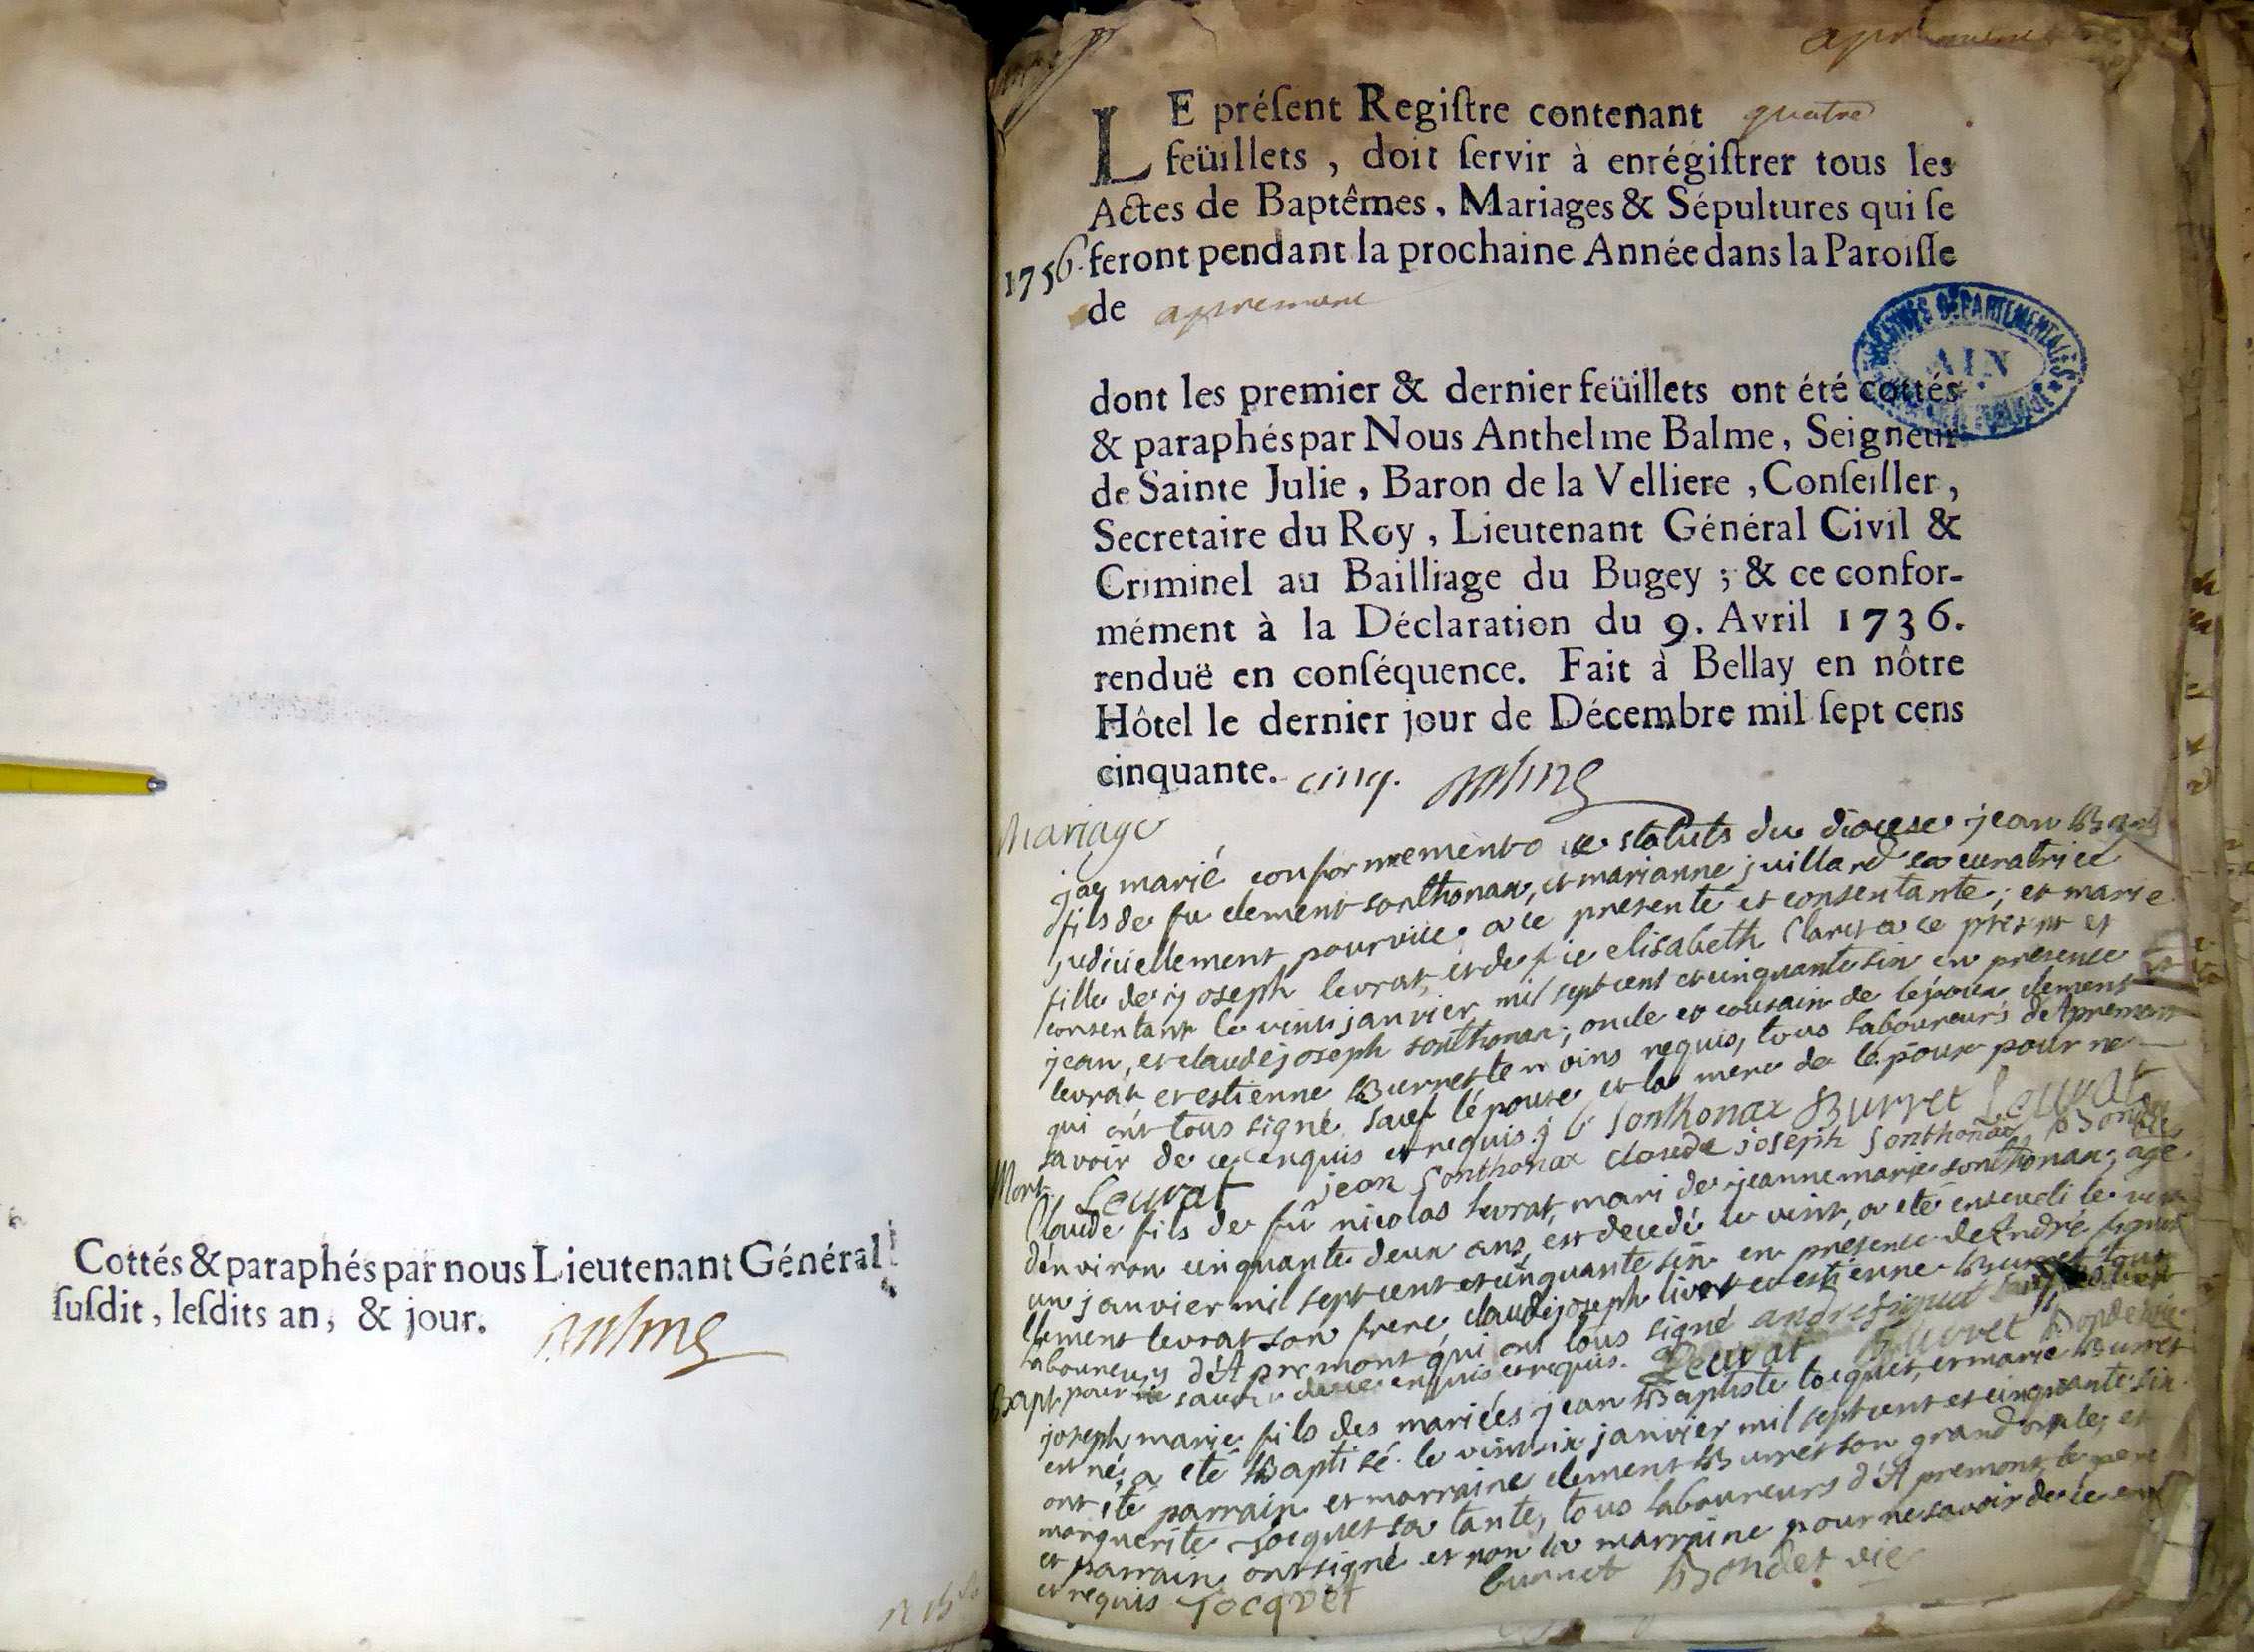 Cottés & paraphés par nous Lieutenant Général
ſuſdit, leſdits an, & jour.
Balme
apremont
LE préſent Regiſtre contenant quatre
feüillets, doit ſervir à enrégiſtrer tous les
Actes de Baptêmes, Mariages & Sépultures qui ſe
1756. feront pendant la prochaine Année dans la Paroiſſe
de apremont
ARCHIVES DÉPARTEMENTALES
AIN
dont les premier & dernier feüillets ont été cottés
& paraphés par Nous Anthelme Balme, Seigneur
de Sainte Julie, Baron de la Velliere, Conſeiller,
Secretaire du Roy, Lieutenant Général Civil &
Criminel au Bailliage du Bugey; & ce confor-
mément à la Déclaration du 9. Avril 1736.
renduë en conſéquence. Fait à Bellay en nôtre
Hôtel le dernier jour de Décembre mil ſept cens
cinquante. cinq. Balme
Mariage
jay marié conformement o statuts du diocese jean Bap
fils de fu clement sonthonax, et marianne juillard sa curatrice
judiciellement pourvue a ce presente et consentante; et marie
fille de joseph levrat, et de fue elisabeth Claret a ce present et
consentant le vint janvier mil sept cent et cinquante six en presence
jean, et claudejoseph sonthonax; oncle et cousain de lépoux clement
levrat et estienne Burret temoins requis, tous laboureurs dApremont
qui ont tous signé sauf lépouse et la mere de lépoux pour ne
savoir de ce enquis et requis. j b Sonthonax Burret Leuvrat
Mort Leuvrat jean Sonthonax claude joseph Sonthonax Bondet
Claude fils de fû nicolas levrat, mari de jeannemarie sonthonax; agé
dénviron cinquante deux ans, est decedé le vint, a eté enseveli le vint
un janvier mil sept cent et cinquante six en presence de André signet
clement levrat son frere, claudejoseph livet et estienne Burret tous
laboureurs d'Apremont qui ont tous signé andre signet
pour ne savoir de ce enquis et requis. Leuvrat Burret Bondet vic.
Bapt
joseph marie fils des mariées jean Baptiste tocquet, et marie Burret
est né, a eté Baptisé le vint six janvier mil sept cent et cinquante six
ont eté parrain et marraine clement Burret son grand oncle; et
marguerite Tocquet sa tante, tous laboureurs d'Apremont, le pere
et parrain ont signé et non la marraine pour ne savoir de ce enq
et requis Tocquet burret Bondet vic